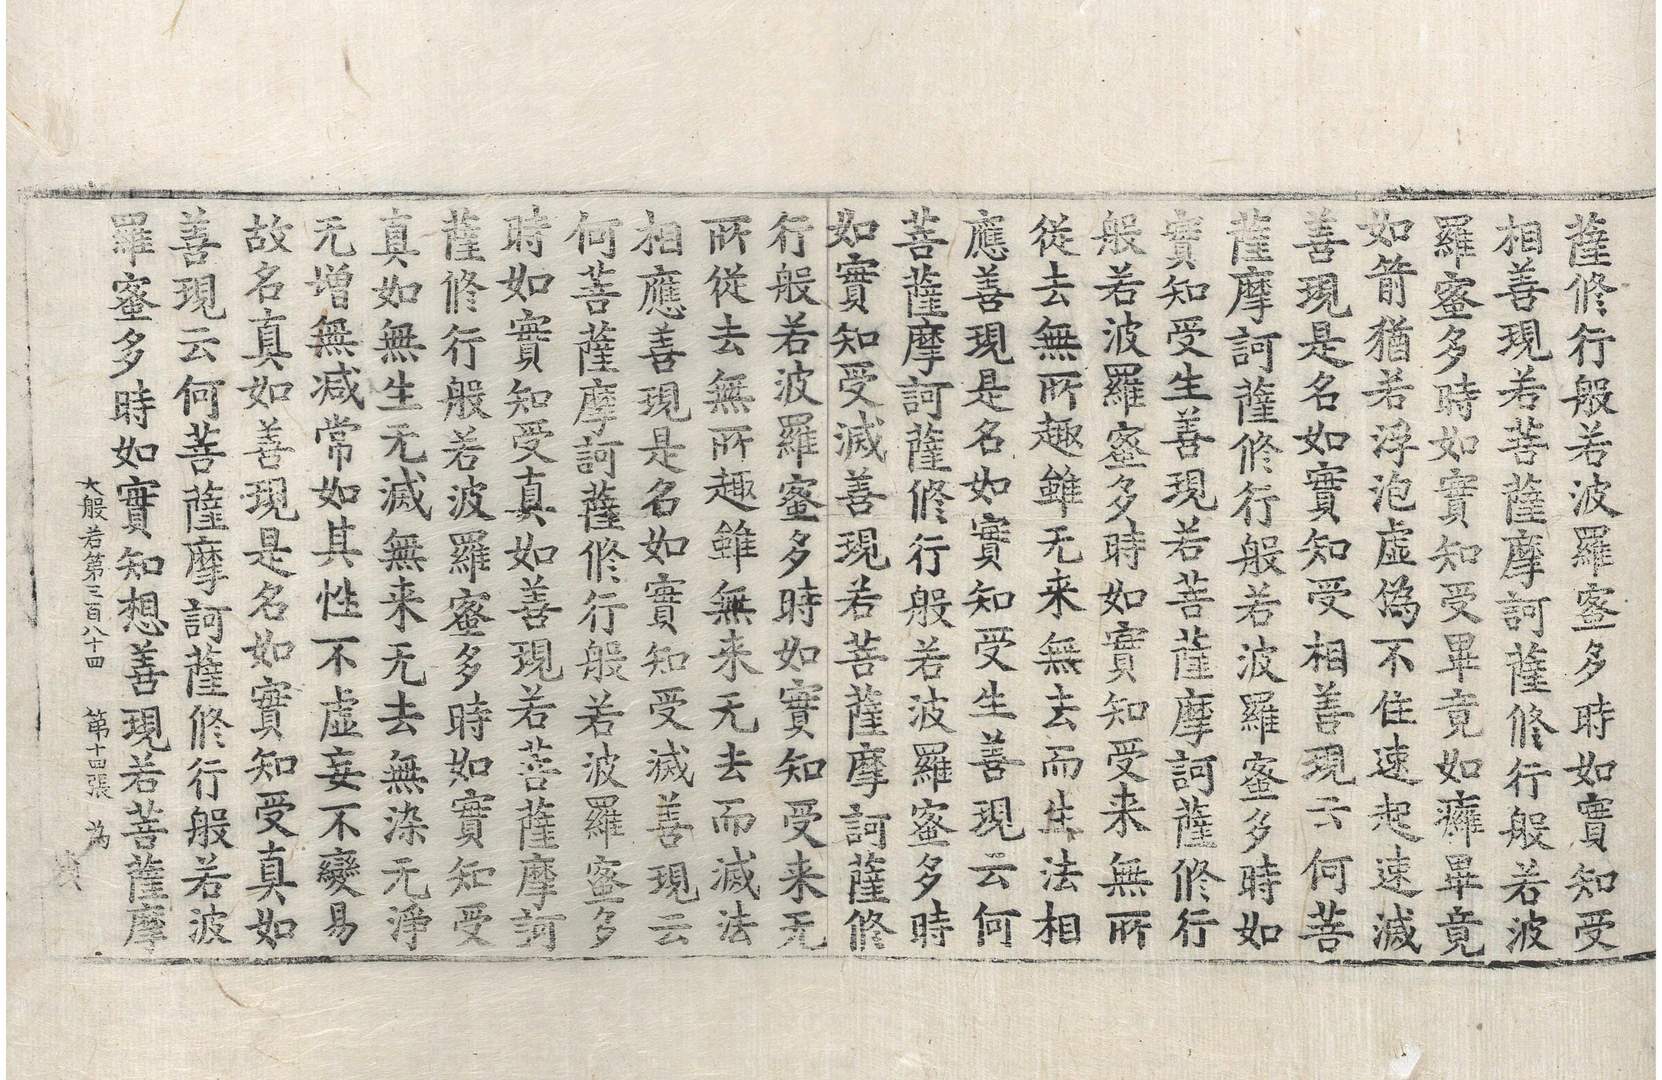 薩修行般若波羅蜜多時如實知受
相善現若菩薩摩訶薩修行般若波
羅蜜多時如實知受畢竟如癰畢竟
如箭猶若浮泡虛僞不住速起速滅
善現是名如實知受相善現云何菩
薩摩訶薩修行般若波羅蜜多時如
實知受生善現若菩薩摩訶薩修行
般若波羅蜜多時如實知受来無所
從去無所趣雖无来無去而生法相
應善現是名如實知受生善現云何
菩薩摩訶薩修行般若波羅蜜多時
如實知受滅善現若菩薩摩訶薩修
行般若波羅蜜多時如實知受来无
所從去無所趣雖無来无去而滅法
相應善現是名如實知受滅善現云
何菩薩摩訶薩修行般若波羅蜜多
時如實知受真如善現若菩薩摩訶
薩修行般若波羅蜜多時如實知受
真如無生无滅無来无去無染无淨
无增無减常如其性不虛妄不變易
故名真如善現是名如實知受真如
善現云何菩薩摩訶薩修行般若波
羅蜜多時如實知想善現若菩薩摩
大般若第三百八十四 第十四張 為